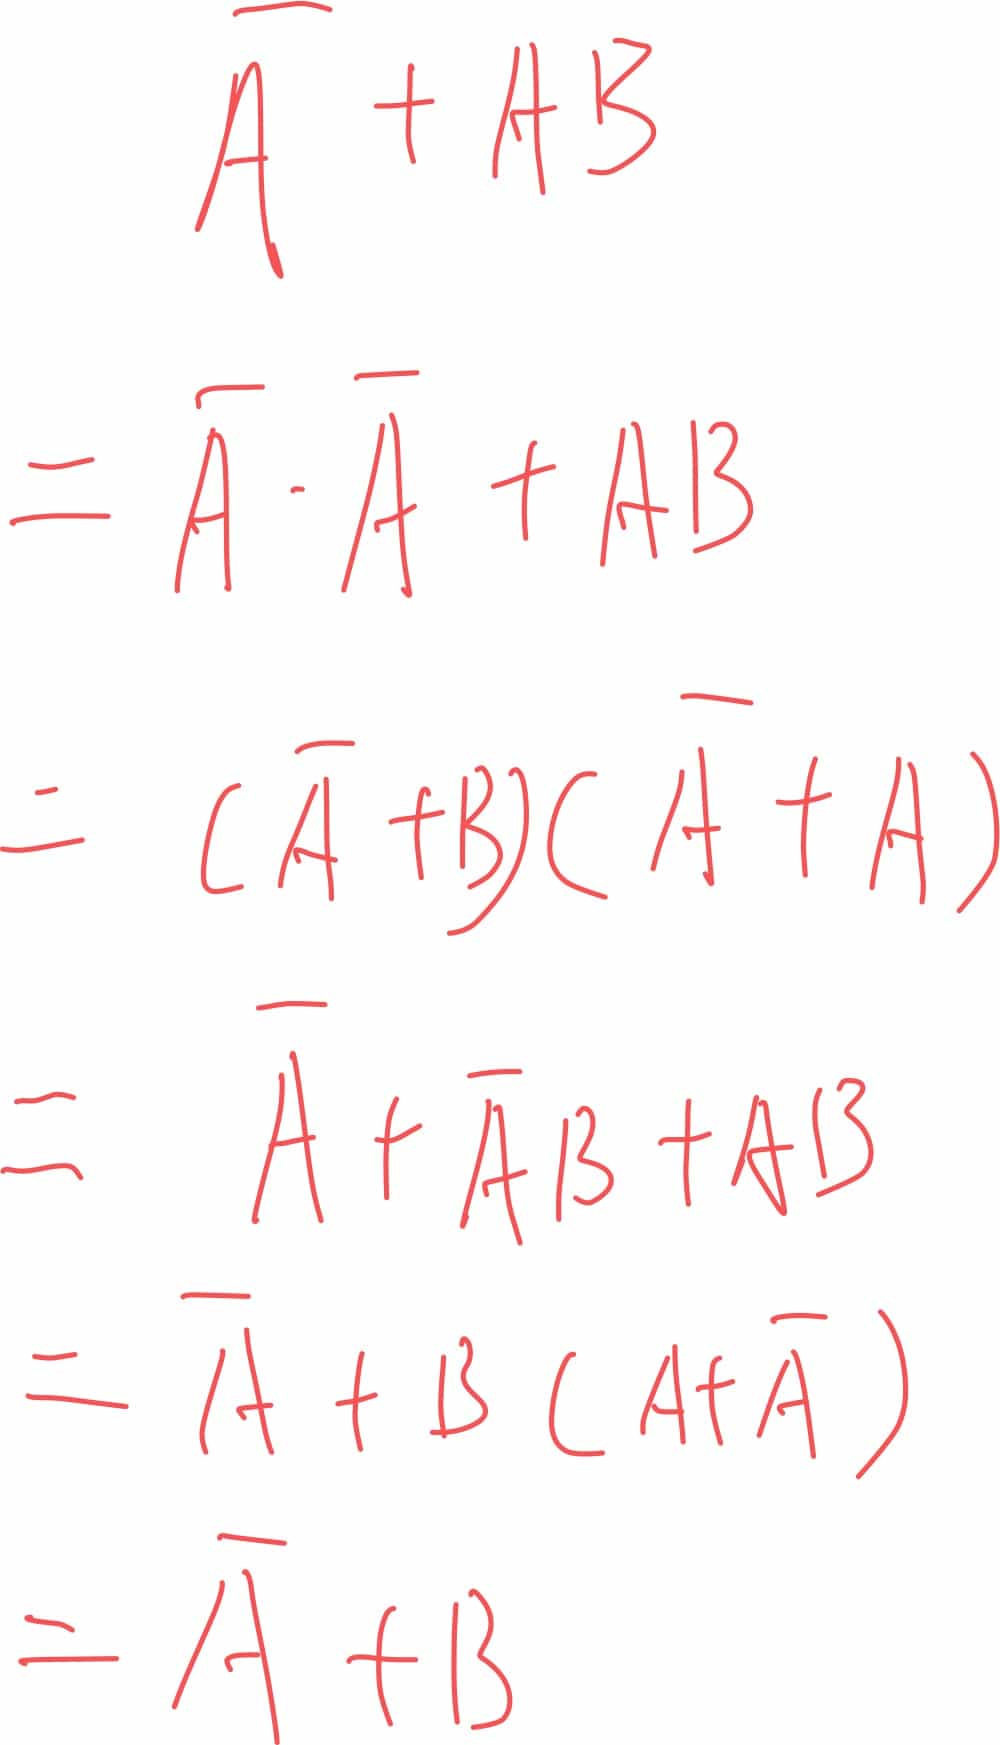 A̅ + AB
= A̅ · A̅ + AB
= (A̅ + B)(A̅ + A)
= A̅ + A̅B + AB
= A̅ + B(A + A̅)
= A̅ + B